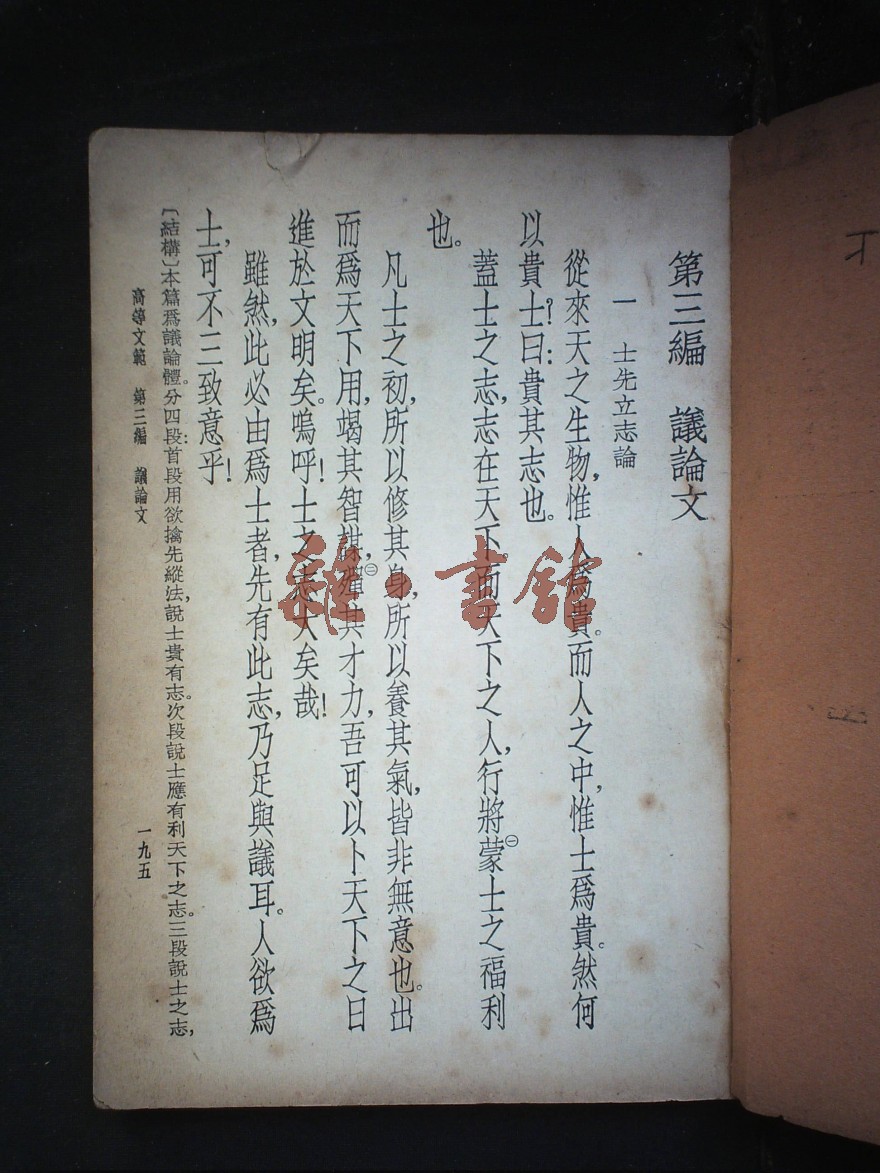 第三編　議論文
一　士先立志論
從來天之生物，惟人爲貴。而人之中，惟士爲貴。然何
以貴士？曰：貴其志也。
蓋士之志，志在天下。而天下之人，行將㊀蒙士之福利
也。
凡士之初，所以修其身，所以養其氣，皆非無意也。出
而爲天下用，竭其智謀，㊁殫其才力，吾可以卜天下之日
進於文明矣。嗚呼！士之志大矣哉！
雖然，此必由爲士者，先有此志，乃足與議耳。人欲爲
士，可不三致意乎！
〔結構〕本篇爲議論體。分四段：首段用欲擒先縱法，說士貴有志。次段說士應有利天下之志。三段說士之志，
高等文範　第三編　議論文
一九五
雜·書館